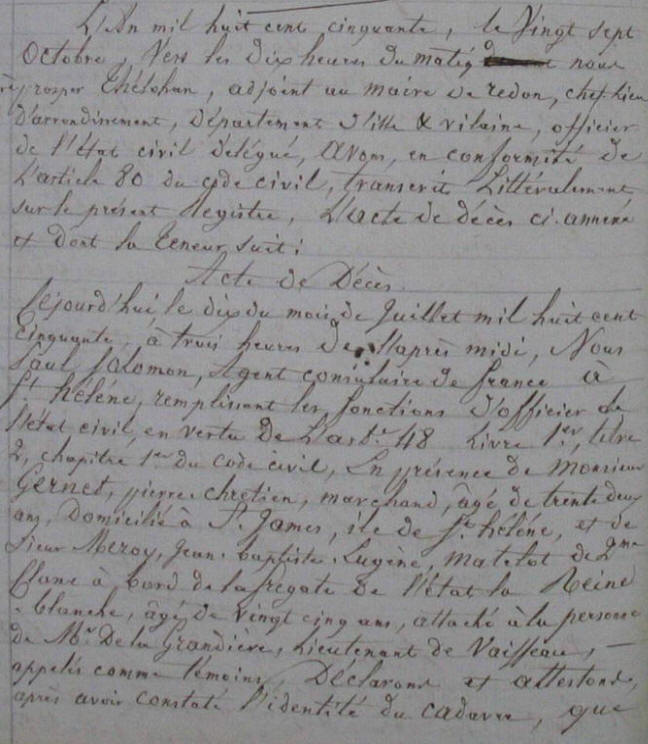 L'An mil huit cent cinquante, le Vingt sept
Octobre, Vers les dix heures du matin nous
prosper Thélohan, adjoint au maire de redon, chef-lieu
d'arrondissement, département d'ille & vilaine, officier
de l'état civil délégué, Avons, en conformité de
L'article 80 du code civil, transcrit Littéralement
sur le présent Registre, L'acte de décès ci-annexé
et dont la teneur suit:
Acte de Décès.
Cejourd'hui le dix du mois de Juillet mil huit cent
cinquante, à trois heures de l'après midi, Nous
Saul Solomon, Agent consulaire de france à
Ste hélène, remplissant les fonctions d'officier de
l'état civil, en vertu de L'art. 48 Livre 1er, titre
2, chapitre 1er du Code civil, En présence de Monsieur
Gernet, pierre chretien, marchand, âgé de trente deux
ans, domicilié à St. James, ile de Ste hélène, et de
Sieur Meroy, Jean-baptiste Eugène, matelot de 2me
Classe à bord de la fregate de l'état la Reine
-blanche, âgé de vingt cinq ans, attaché à la personne
de Mr De la Grandière, Lieutenant de Vaisseau, —
appelés comme témoins, Déclarons et attestons,
après avoir constaté l'identité du cadavre, que